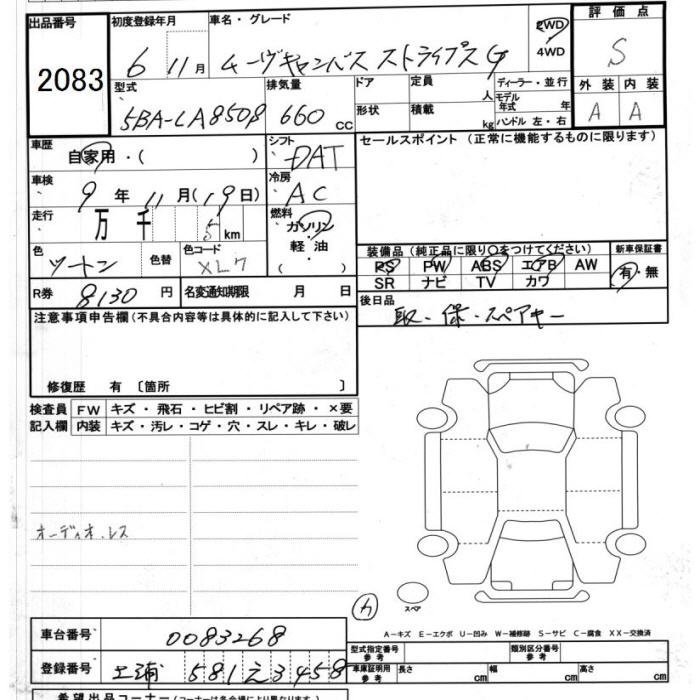 出品番号 初度登録年月 車名・グレード 2WD 評価点
2083 6 11月 ムーヴキャンバス ストライプス G 4WD S
型式 排気量 ドア 定員 人 ディーラー・並行 外装 内装
5BA-LA850S 660 CC 形状 積載 kg モデル年式 年 A A
ハンドル 左・右
車歴 シフト セールスポイント(正常に機能するものに限ります)
自家用・( ) DAT
車検 冷房
9年 11月(19日) AC
走行 燃料
万 千 5 km ガソリン
軽油
( )
色 色替 色コード 装備品(純正品に限り○をつけてください) 新車保証書
ツートン XL7 PS PW ABS エアB AW 有・無
SR ナビ TV カワ
R券 8130円 名変通知期限 月 日 後日品
取・保・スペアキー
注意事項申告欄(不具合内容等は具体的に記入して下さい)
修復歴 有 〔箇所 〕
検査員 FW キズ・飛石・ヒビ割・リペア跡・×要
記入欄 内装 キズ・汚レ・コゲ・穴・スレ・キレ・破レ
オーディオレス
スペア
A-キズ E-エクボ U-凹み W-補修跡 S-サビ C-腐食 XX-交換済
車台番号 0083268 型式指定番号 類別区分番号
参考 参考
登録番号 土浦 581 え 3458 車庫証明用 長さ cm 幅 cm 高さ cm
参考
希望出品コーナー(コーナーは各会場により異なります。)